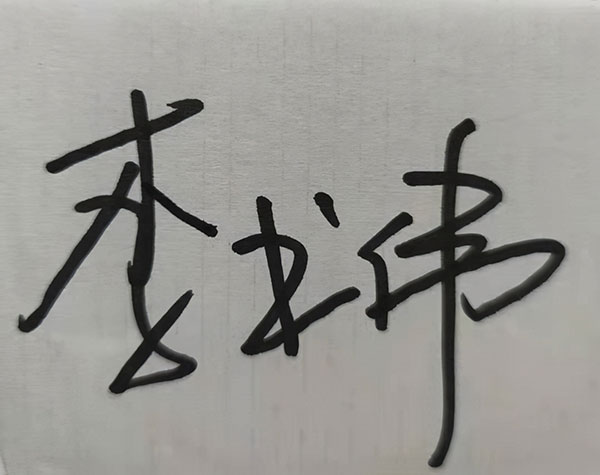 李书伟